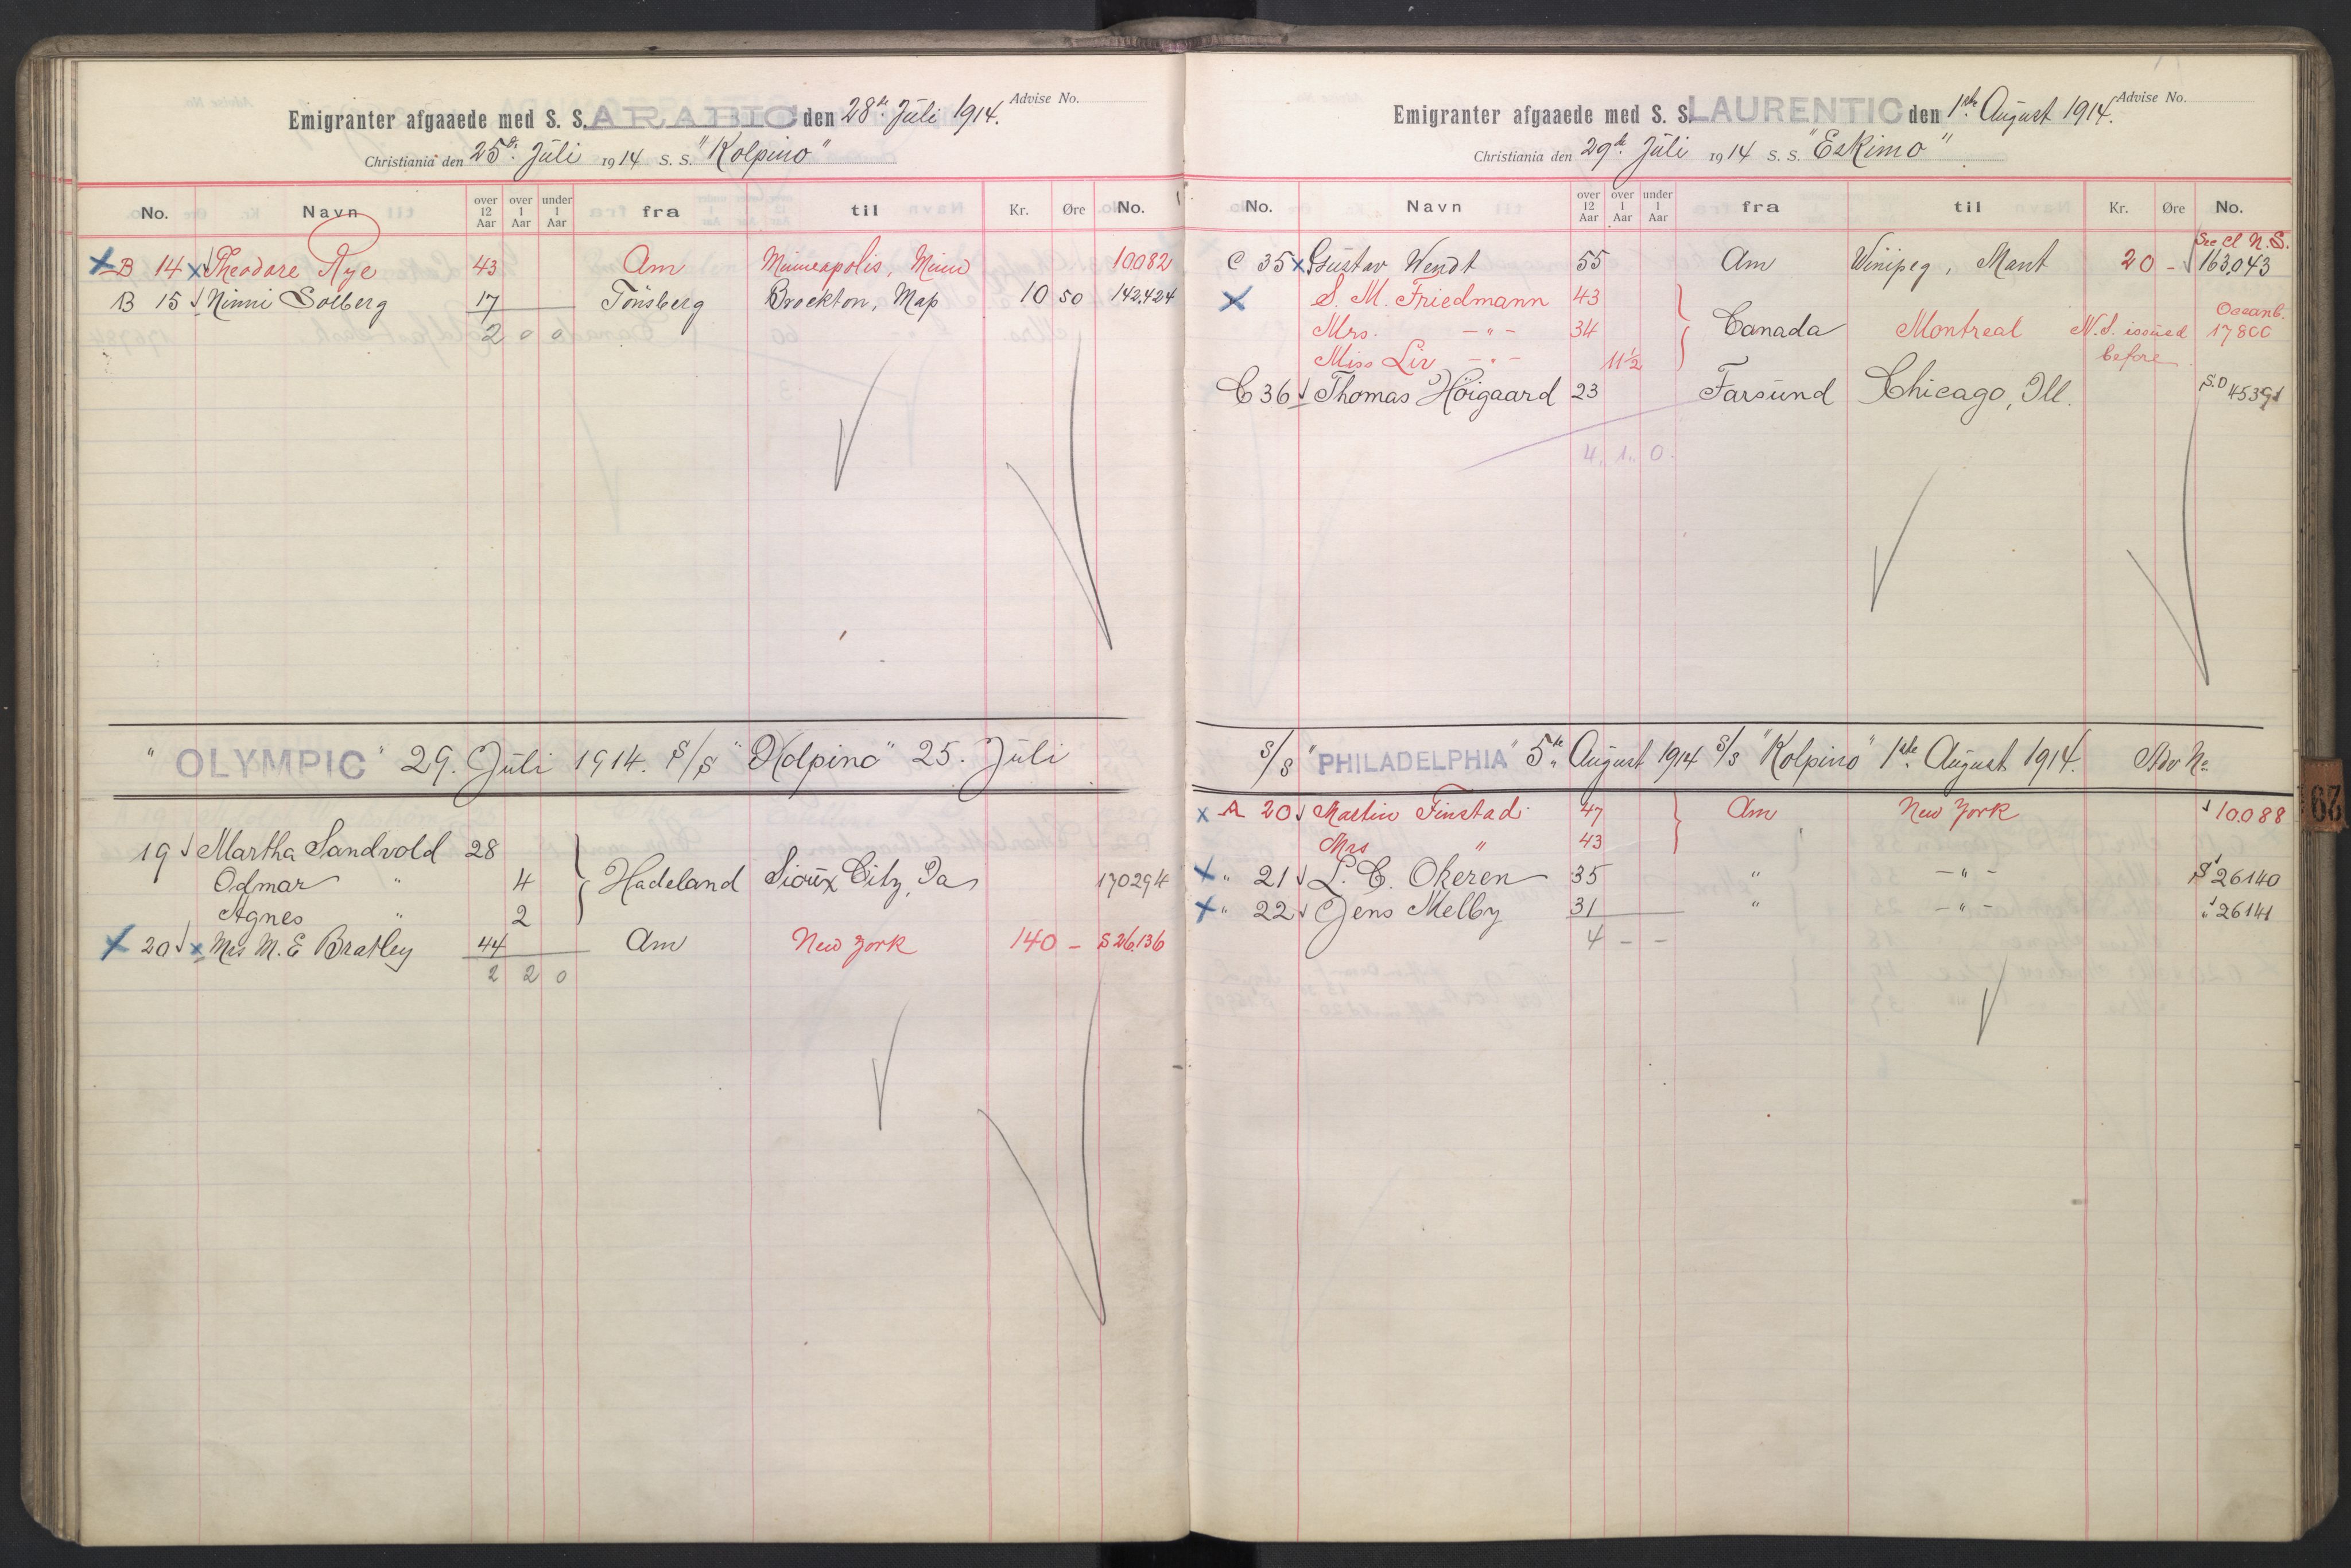 Emigranter afgaaede med S. S. ARABIC den 28de Juli 1914. Advise No.
Christiania den 25de Juli 1914 S. S. "Kolpino"
No. Navn over 12 Aar over 1 Aar under 1 Aar fra til Kr. Øre No.
B 14 Theodore Rye 43 Am Minneapolis, Minn 10.082
B 15 Ninni Solberg 17 Tönsberg Brockton, Mass 10 50 142.424
2 0 0
"OLYMPIC" 29. Juli 1914. S/S "Kolpino" 25. Juli
19 Martha Sandvold 28
Odmar " 4 Hadeland Sioux City, Ia 170294
Agnes " 2
20 Mrs M. E Bratley 44 Am New York 140 - S 26.136
2 2 0
Emigranter afgaaede med S. S. LAURENTIC den 1ste August 1914. Advise No.
Christiania den 29de Juli 1914 S. S. "Eskimo"
No. Navn over 12 Aar over 1 Aar under 1 Aar fra til Kr. Øre No.
See Cl N.S.
C 35 Gustav Wendt 55 Am Winipeg, Mant 20 - 163043
S. M. Friedmann 43 Oceanb.
Mrs. - " - 34 Canada Montreal N.S. issued 17800
Miss Liv - " - 11½ before
C 36 Thomas Höigaard 23 Farsund Chicago, Ill. S.O 45391
4. 1. 0.
S/S "PHILADELPHIA" 5te August 1914 S/S "Kolpino" 1ste August 1914. Adv No
A 20 Martin Finstad 47 Am New York 10.088
Mrs " 43
" 21 L. C. Okeren 35 " - " - S 26140
" 22 Jens Melby 31 " - " - " 26141
4 - -
63